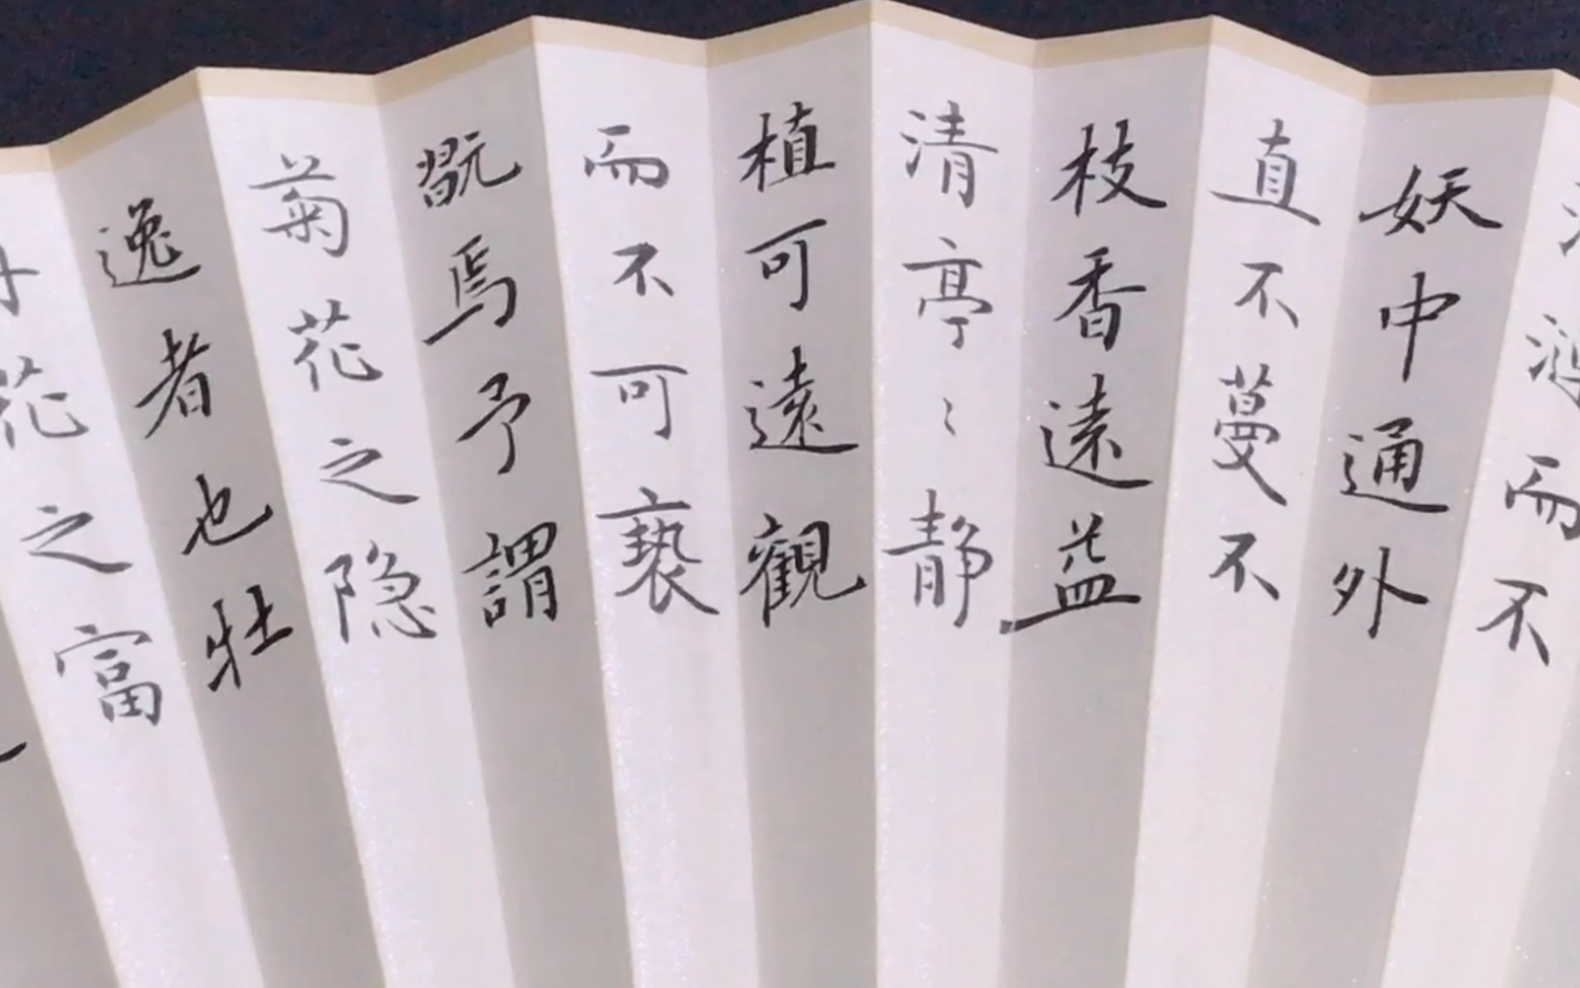 漣而不
妖中通外
直不蔓不
枝香遠益
清亭〻静
植可遠觀
而不可褻
翫焉予謂
菊花之隐
逸者也牡
丹花之富